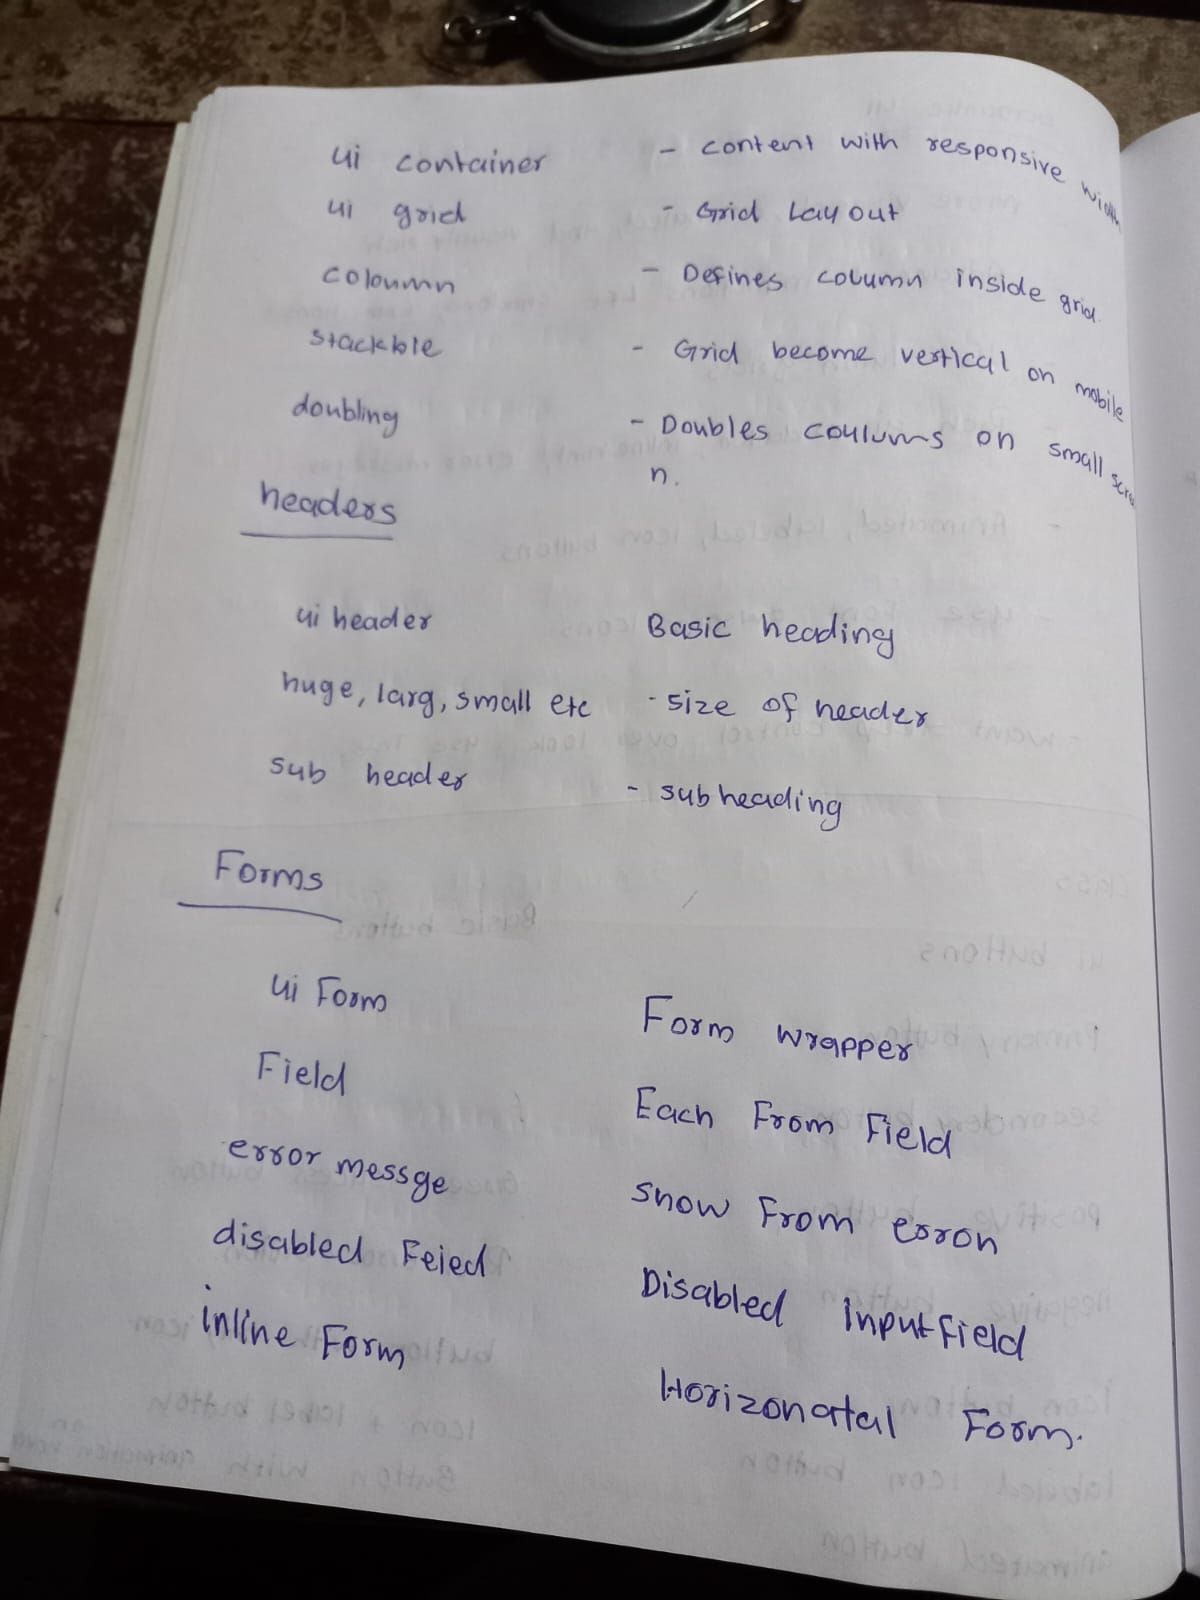 ui container - content with responsive width
ui grid - Grid Lay out
coloumn - Defines column inside grid.
stackble - Grid become vertical on mobile
doubling - Doubles coulums on small scree
n.
headers
ui header Basic heading
huge, larg, small etc - size of header
sub header - sub heading
Forms
ui Form Form wrapper
Field Each From Field
error messge show From erron
disabled Feied Disabled Input field
inline Form Horizonatal Form.